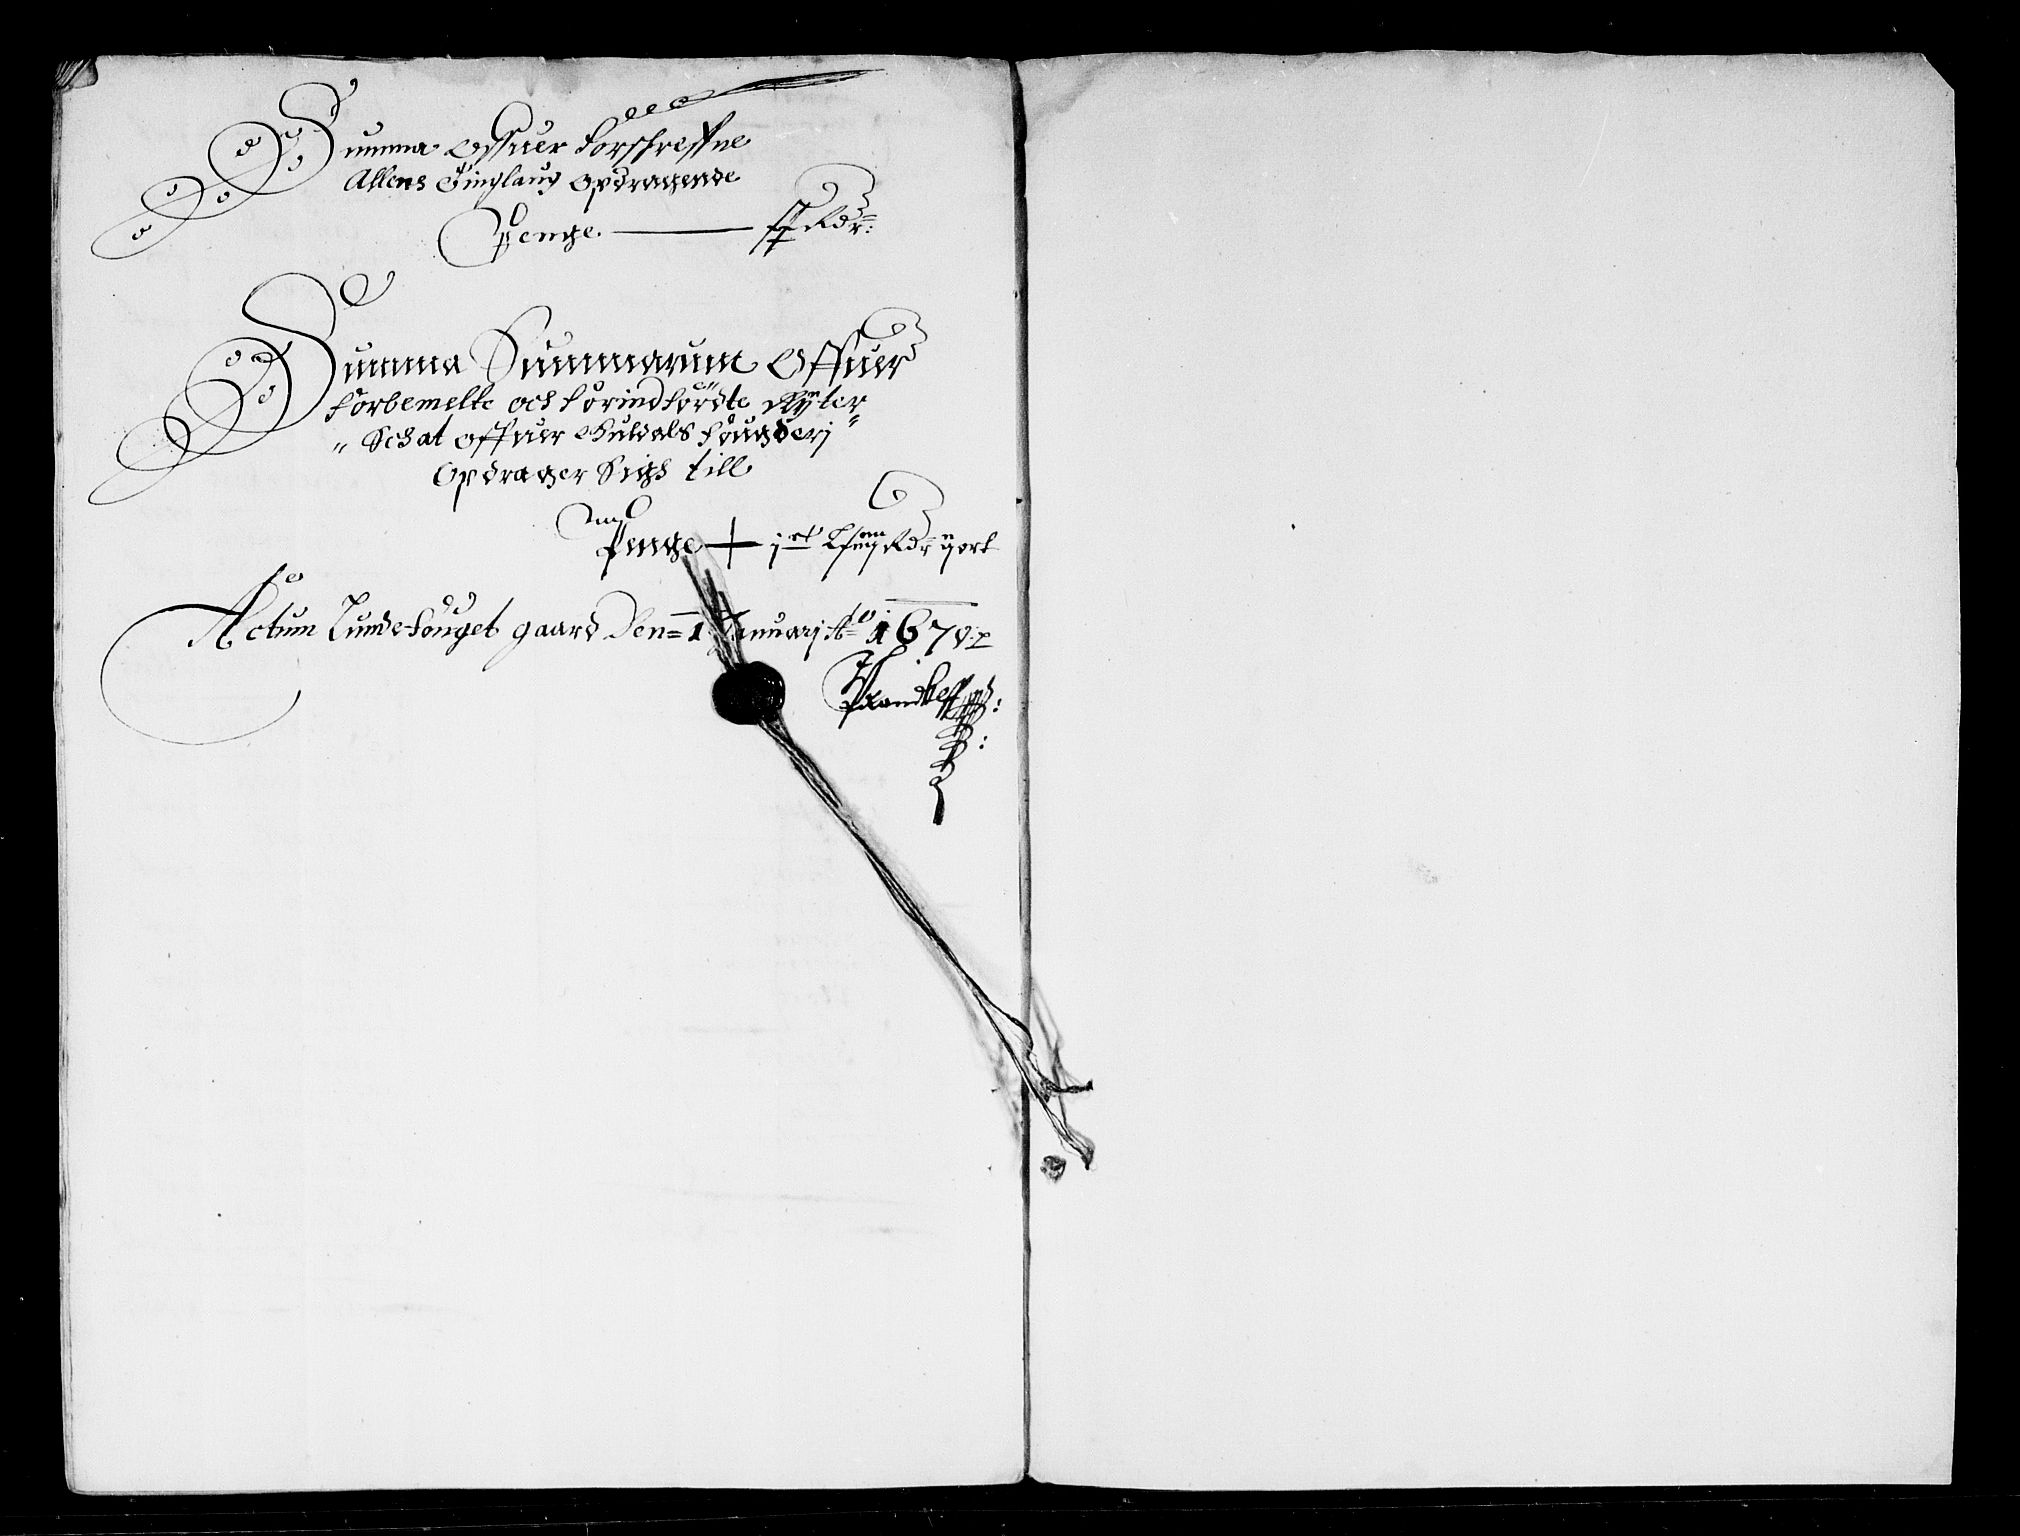 Summa Offuer forskreffne
Allens Tinglaug Opdragende
Penge. Rdr:
Summa Summarum Offuer
Forbemelte och Forindførdte Rÿter
Schat offuer Guldals Fougderj
Opdrager Sigh till
Penge Rdr ort
Actum Lundefouget gaard Den 1 Januarj Ao 1670